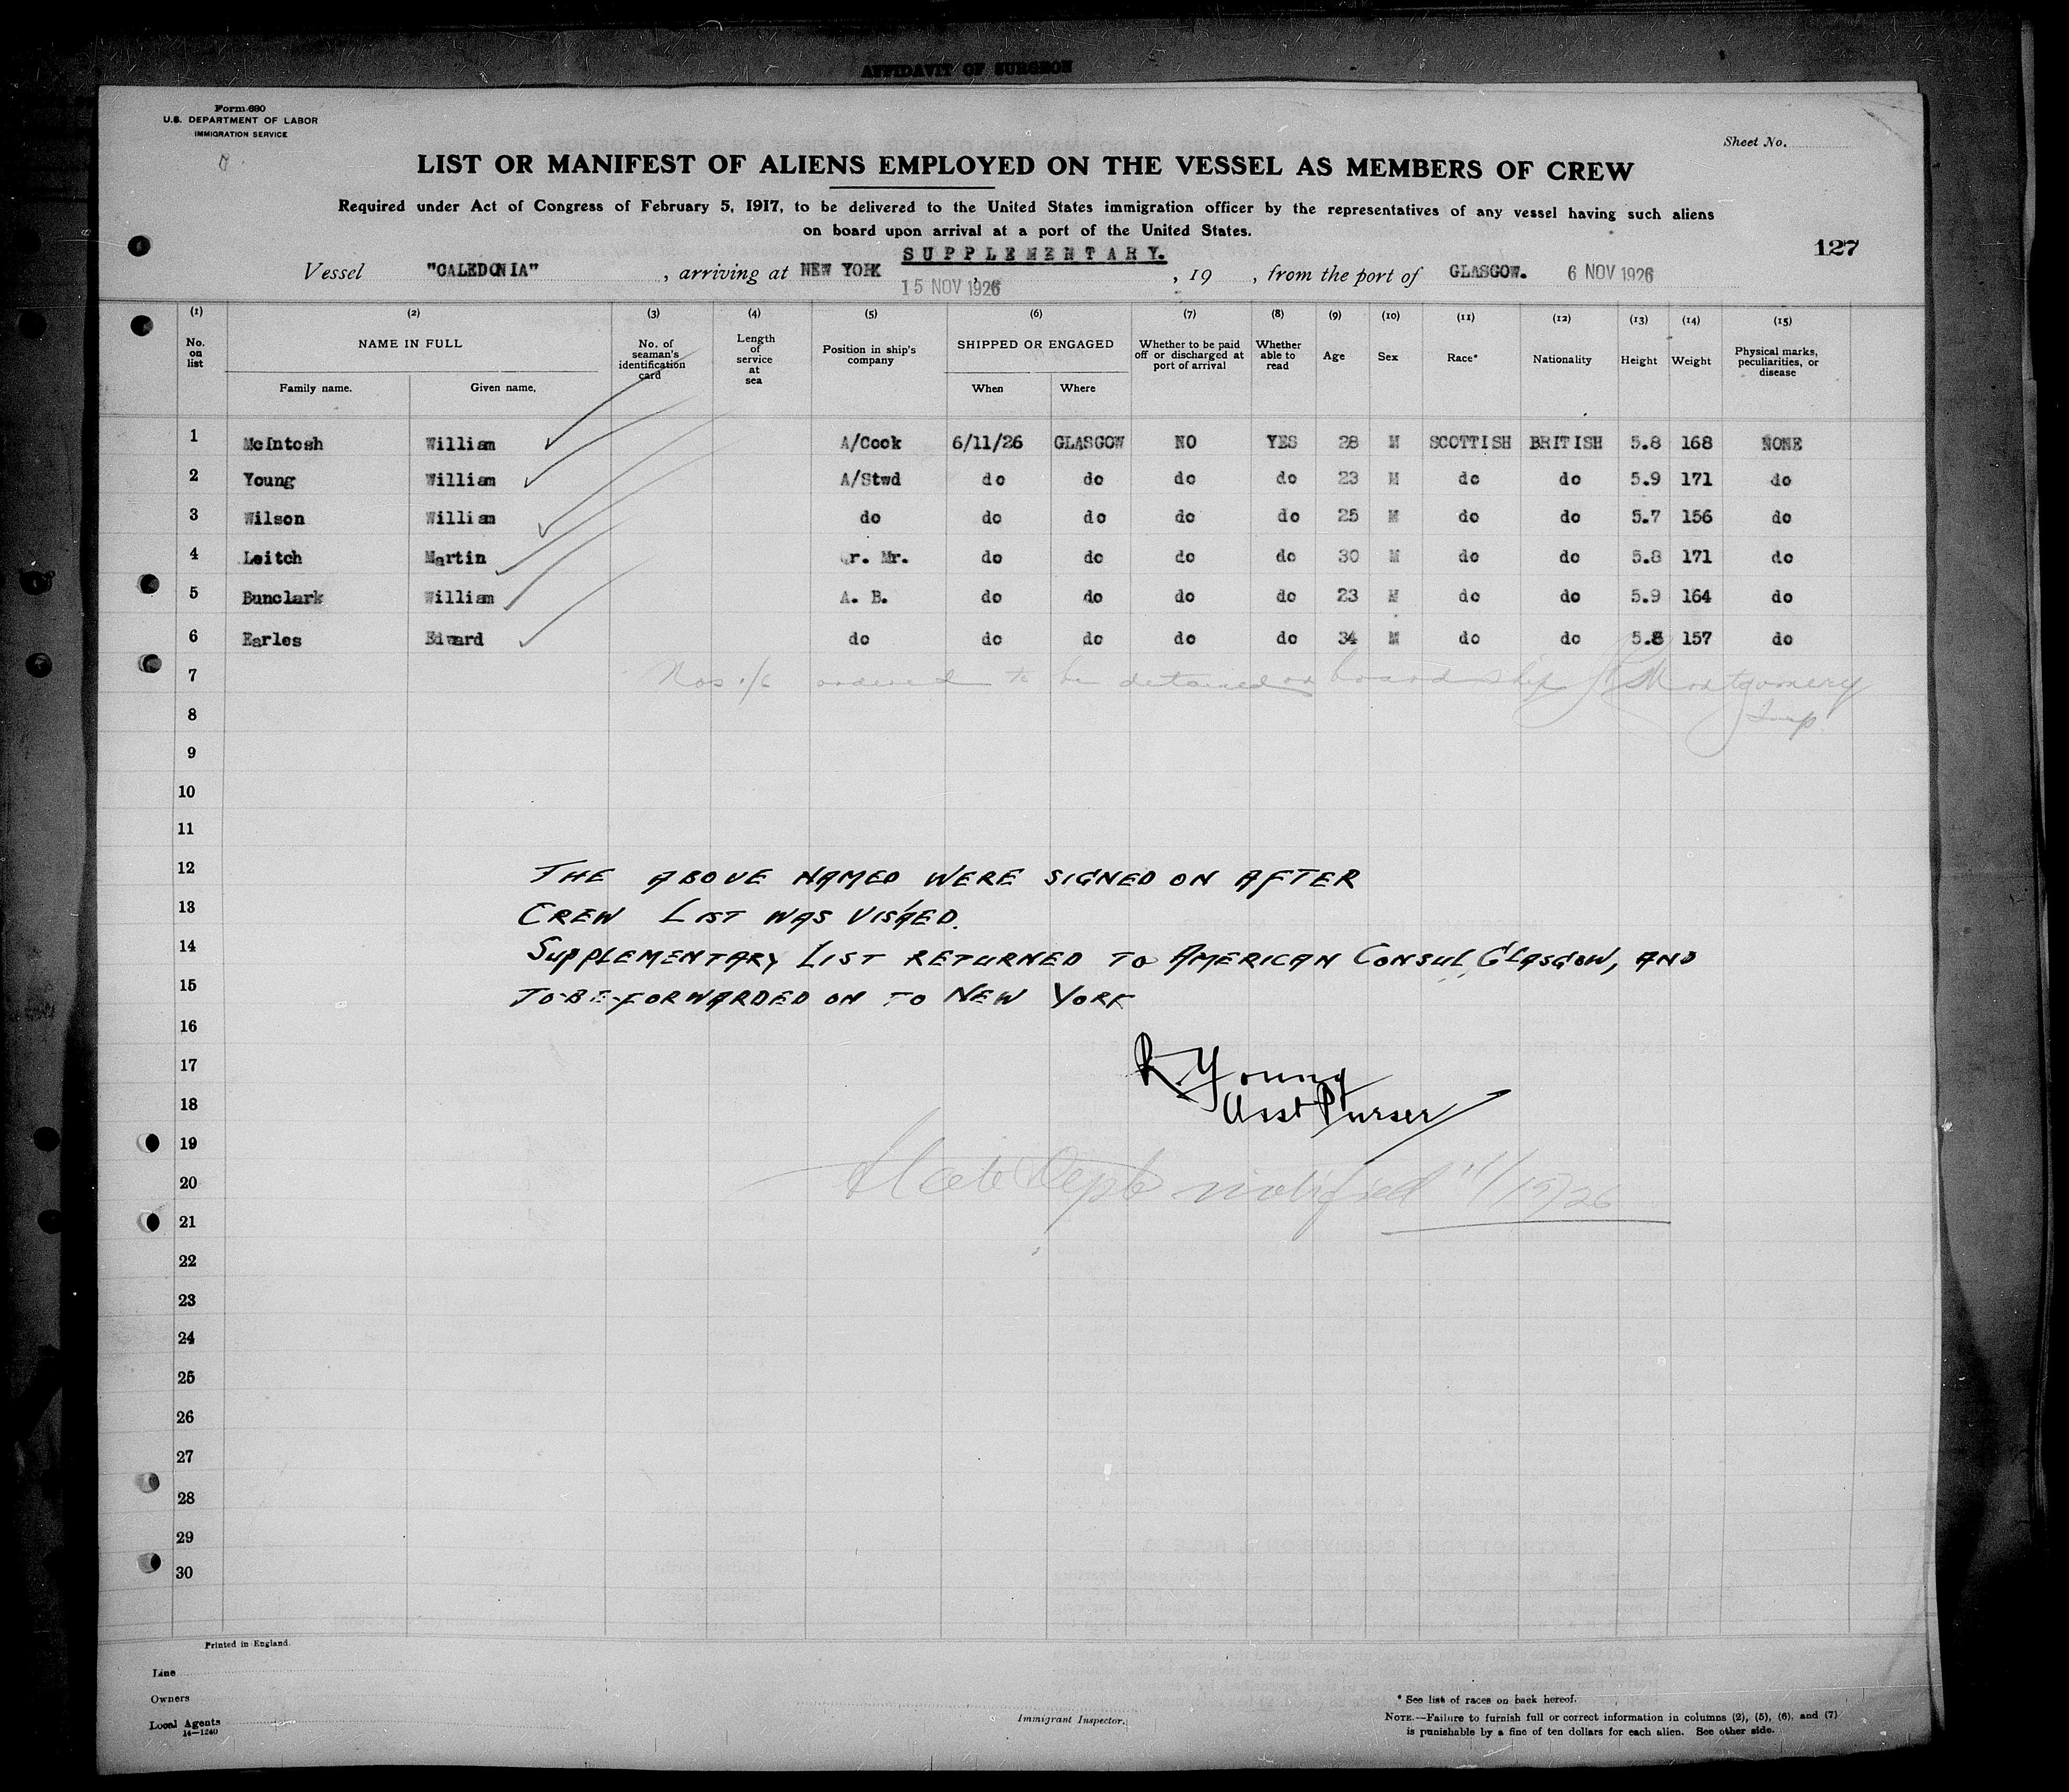 AFFIDAVIT OF SURGEON
Form 680
U.S. DEPARTMENT OF LABOR
IMMIGRATION SERVICE
Sheet No.
LIST OR MANIFEST OF ALIENS EMPLOYED ON THE VESSEL AS MEMBERS OF CREW
Required under Act of Congress of February 5, 1917, to be delivered to the United States immigration officer by the representatives of any vessel having such aliens
on board upon arrival at a port of the United States.
SUPPLEMENTARY.
127
Vessel "CALEDONIA", arriving at NEW YORK 15 NOV 1926, 19 , from the port of GLASGOW. 6 NOV 1926
(1) (2) (3) (4) (5) (6) (7) (8) (9) (10) (11) (12) (13) (14) (15)
No. on list NAME IN FULL Family name. Given name. No. of seaman's identification card Length of service at sea Position in ship's company SHIPPED OR ENGAGED When Where Whether to be paid off or discharged at port of arrival Whether able to read Age Sex Race* Nationality Height Weight Physical marks, peculiarities, or disease
1 McIntosh William A/Cook 6/11/26 GLASGOW NO YES 28 M SCOTTISH BRITISH 5.8 168 NONE
2 Young William A/Stwd do do do do 23 M do do 5.9 171 do
3 Wilson William do do do do do 25 M do do 5.7 156 do
4 Leitch Martin r. Mr. do do do do 30 M do do 5.8 171 do
5 Bunclark William A. B. do do do do 23 M do do 5.9 164 do
6 Earles Edward do do do do do 34 M do do 5.8 157 do
7 Nos 1/6 ordered to be detained on board ship Montgomery
8 Insp.
9
10
11
12 THE ABOVE NAMED WERE SIGNED ON AFTER
13 CREW LIST WAS VISAED.
14 SUPPLEMENTARY LIST RETURNED TO AMERICAN CONSUL, GLASGOW, AND
15 TO-BE-FORWARDED ON TO NEW YORK
16
17 R. Young
18 Asst Purser
19
20 State Dept notified 11/15/26
21
22
23
24
25
26
27
28
29
30
Printed in England.
Line
Owners
Local Agents
14—1240
Immigrant Inspector.
* See list of races on back hereof.
NOTE.—Failure to furnish full or correct information in columns (2), (5), (6), and (7)
is punishable by a fine of ten dollars for each alien. See other side.